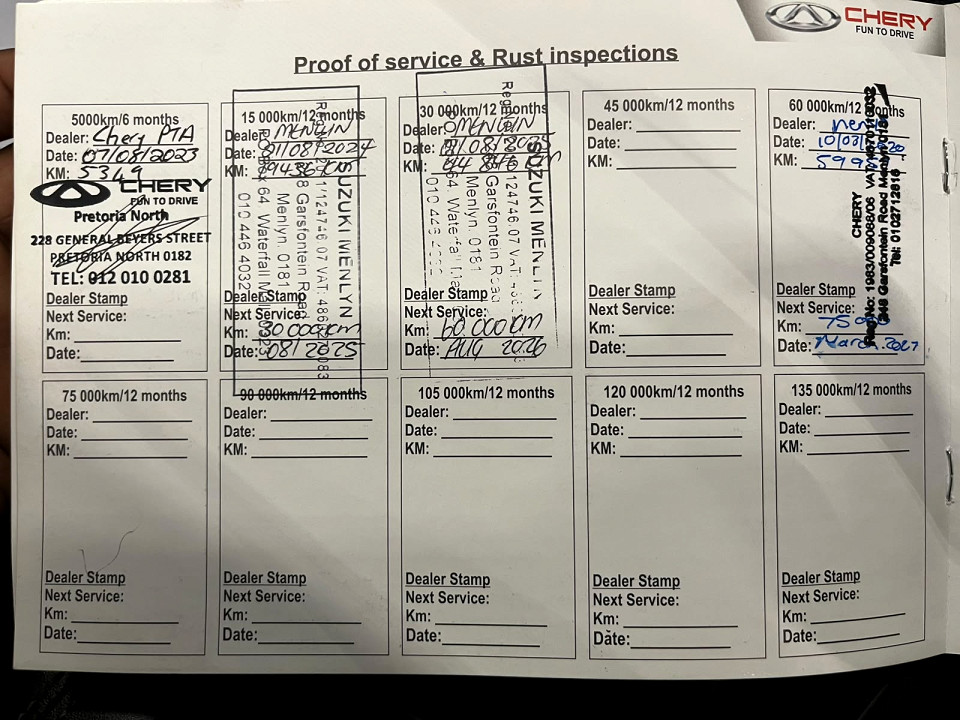 CHERY
FUN TO DRIVE
Proof of service & Rust inspections
5000km/6 months
Dealer: Chery PTA
Date: 07/08/2023
KM: 5349
CHERY
FUN TO DRIVE
Pretoria North
228 GENERAL BEYERS STREET
PRETORIA NORTH 0182
TEL: 012 010 0281
Dealer Stamp
Next Service:
Km:
Date:
15 000km/12 months
Dealer: MENLYN
Date: 01/08/2024
KM:
SUZUKI MENLYN
Garsfontein Road
Menlyn. 0181
64 Waterfall
010 446 4032
Dealer Stamp
Next Service:
Km: 30 000km
Date: 08/2025
30 000km/12 months
Dealer: MENLYN
Date:
KM:
SUZUKI MENLYN
Garsfontein Road
Menlyn. 0181
64 Waterfall
Dealer Stamp
Next Service:
Km: 60 000km
Date: AUG 2026
45 000km/12 months
Dealer:
Date:
KM:
Dealer Stamp
Next Service:
Km:
Date:
60 000km/12 months
Dealer:
Date:
KM:
CHERY
Reg No: 1983/009088/06
Garsfontein Road Menlyn
Tel: 0102712816
Dealer Stamp
Next Service:
Km:
Date: March 2027
75 000km/12 months
Dealer:
Date:
KM:
Dealer Stamp
Next Service:
Km:
Date:
90 000km/12 months
Dealer:
Date:
KM:
Dealer Stamp
Next Service:
Km:
Date:
105 000km/12 months
Dealer:
Date:
KM:
Dealer Stamp
Next Service:
Km:
Date:
120 000km/12 months
Dealer:
Date:
KM:
Dealer Stamp
Next Service:
Km:
Date:
135 000km/12 months
Dealer:
Date:
KM:
Dealer Stamp
Next Service:
Km:
Date: